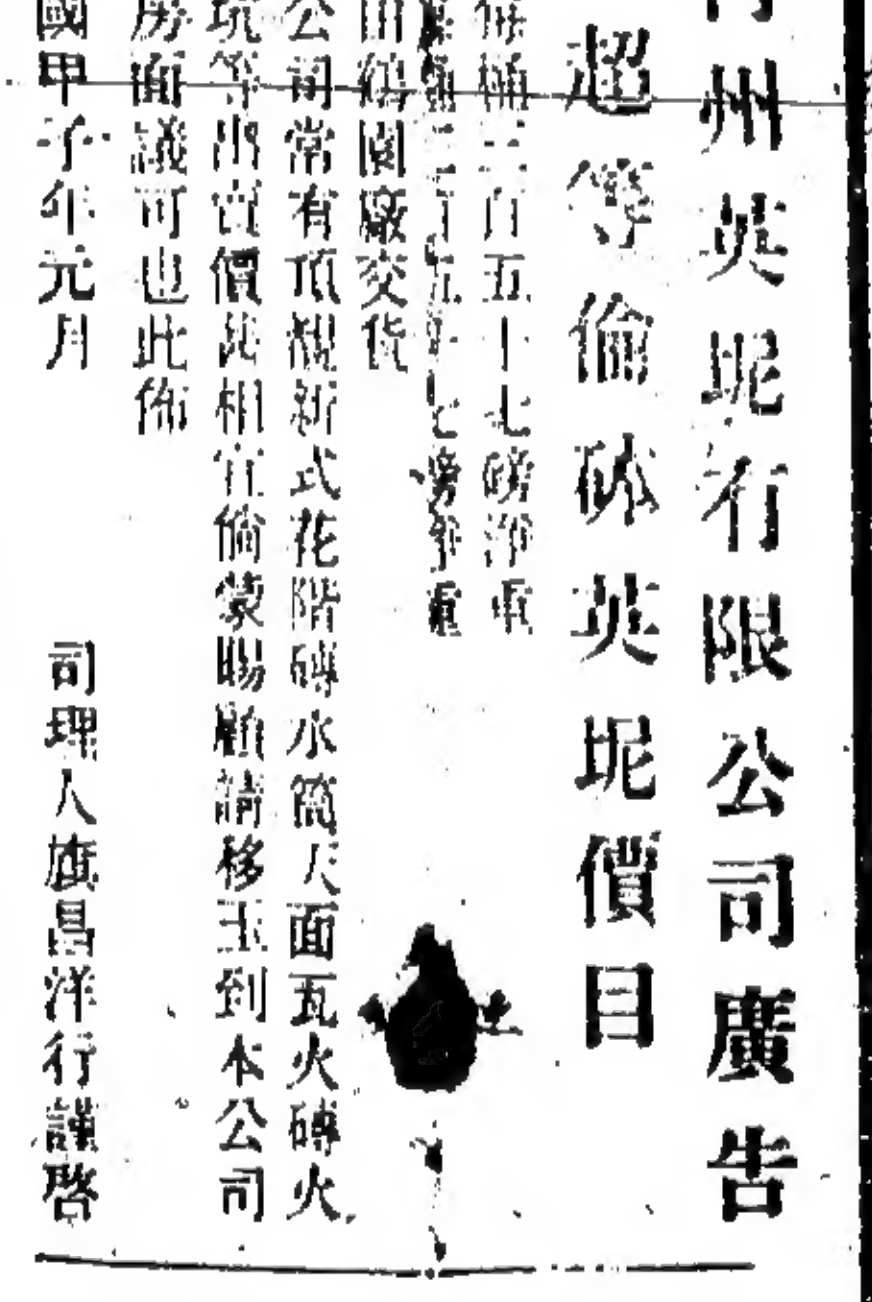 州英坭有限公司廣告
超等倫砵英坭價目
桶三百五十七磅淨重
桶二百五十七磅爭重
鶴園廠交貨
公司常有頂靚新式花階磚水筒瓦面瓦火磚火
坑等出賣價甚相宜倘蒙賜顧請移玉到本公司
房面議可也此佈
國甲子年元月
司理人旗昌洋行謹啓